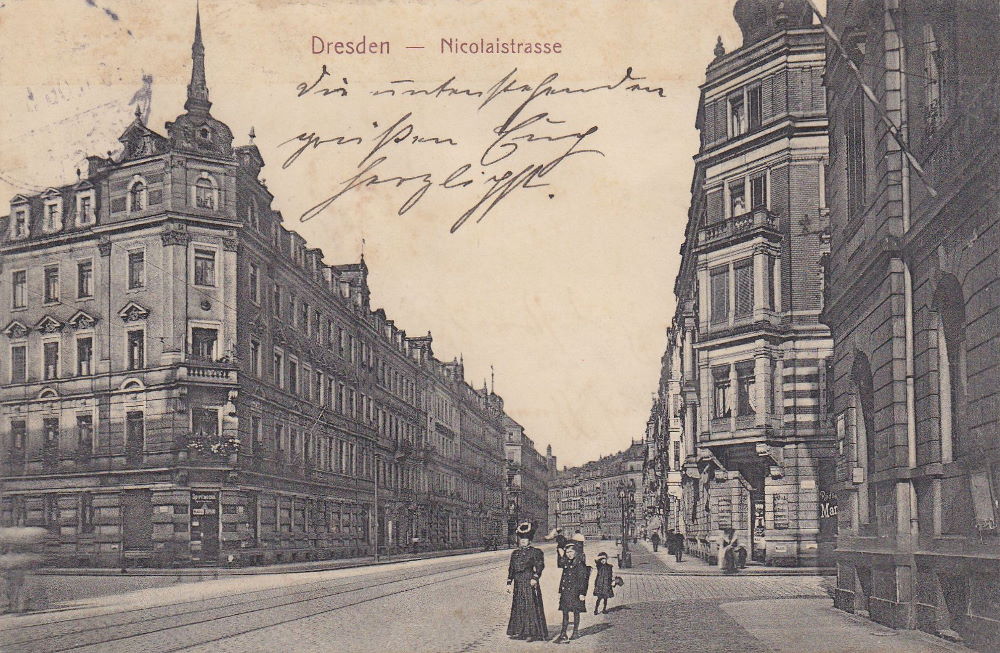 Dresden — Nicolaistrasse
die untenstehenden
grüßen Euch
herzlichst.
Mar